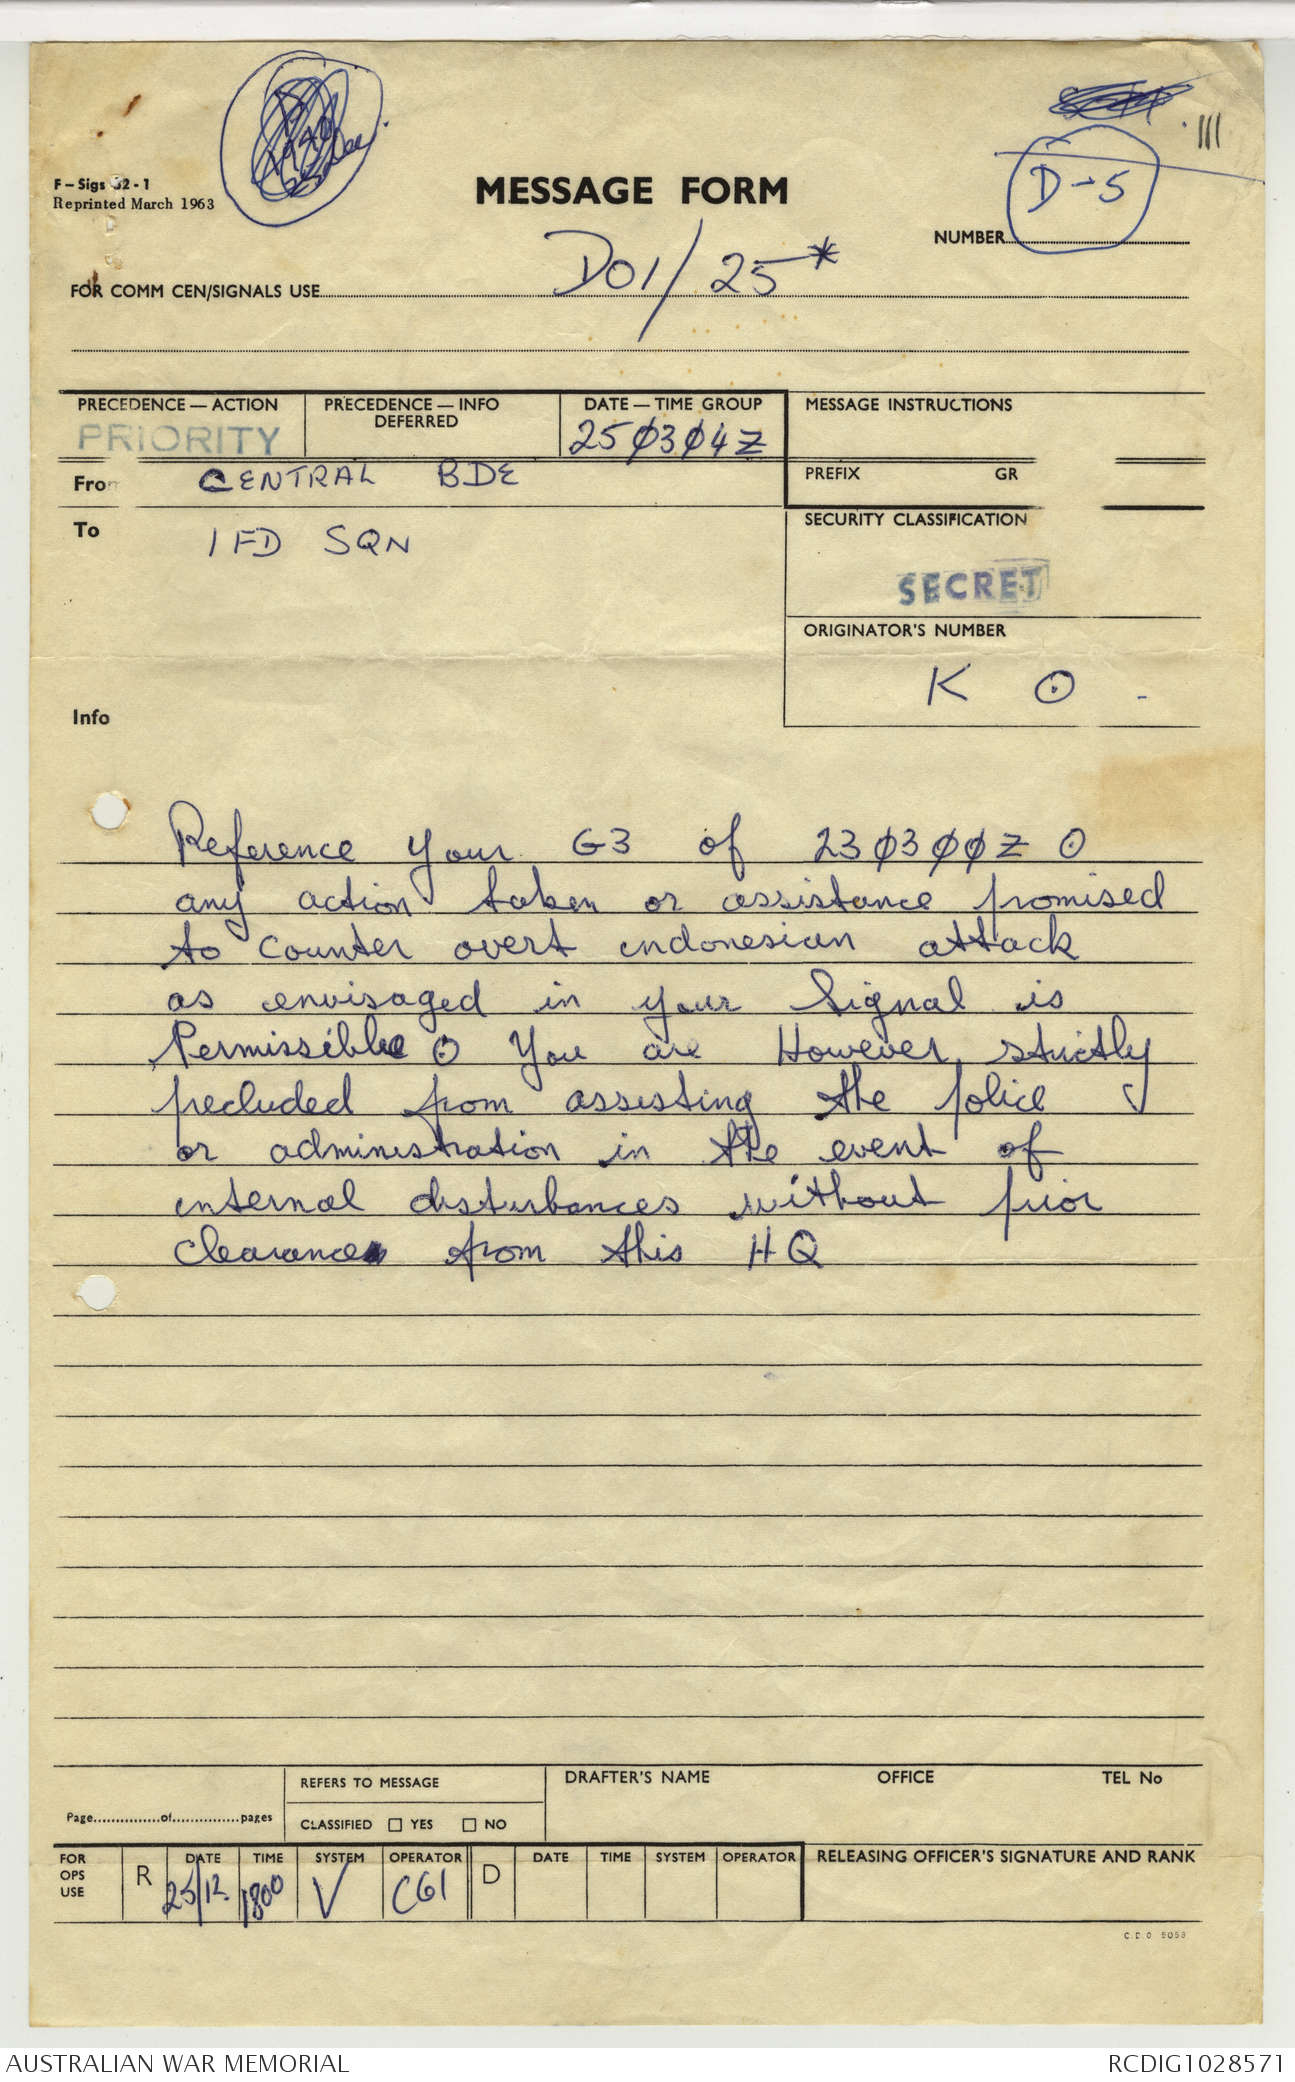 F – Sigs 52 - 1
Reprinted March 1963
MESSAGE FORM
111
D-5
NUMBER
FOR COMM CEN/SIGNALS USE D01/25*
PRECEDENCE — ACTION
PRIORITY
PRECEDENCE — INFO
DEFERRED
DATE — TIME GROUP
25Ø3Ø4Z
MESSAGE INSTRUCTIONS
From CENTRAL BDE
PREFIX GR
To 1 FD SQN
SECURITY CLASSIFICATION
SECRET
ORIGINATOR'S NUMBER
K ⊙ -
Info
Reference your G3 of 23Ø3ØØZ ⊙
any action taken or assistance promised
to counter overt indonesian attack
as envisaged in your Signal is
Permissible ⊙ You are However strictly
precluded from assisting the police
or administration in the event of
internal disturbances without prior
clearance from this HQ
Page of pages
REFERS TO MESSAGE
CLASSIFIED ☐ YES ☐ NO
DRAFTER'S NAME OFFICE TEL No
FOR OPS USE
R DATE 25/12 TIME 1800 SYSTEM V OPERATOR CGI
D DATE TIME SYSTEM OPERATOR
RELEASING OFFICER'S SIGNATURE AND RANK
C.D.O 5058
AUSTRALIAN WAR MEMORIAL RCDIG1028571